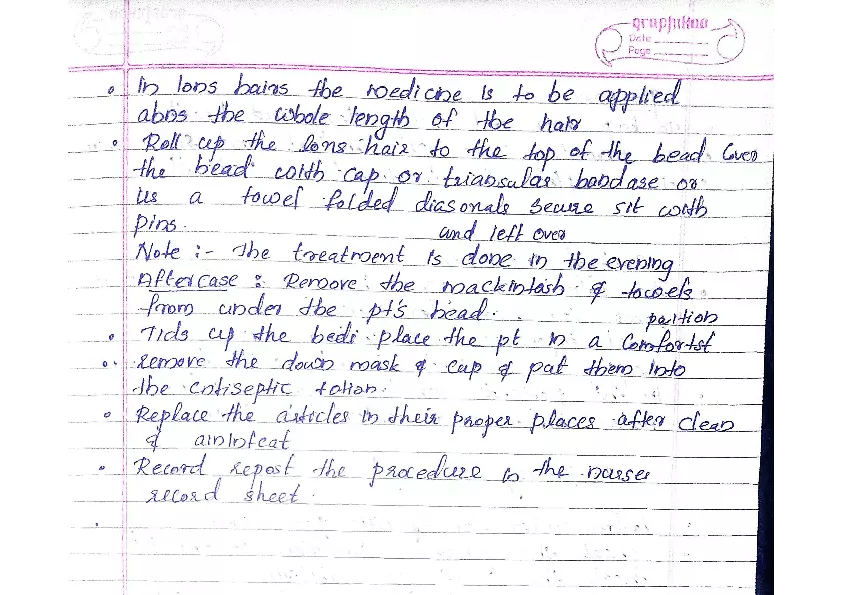 graphittoo
Date
Page
In lons hairs the medicine is to be applied
abns the whole length of the hair
Roll up the lons hair to the top of the head Cover
the head with cap or triansular bandase or
us a towel folded diasonals secure sit with
pins.
and left over
Note :- The treatment is done in the evening
Aftercase : Remove the mackintash & towels
from under the pt's head.
partion
Tids up the bedi place the pt in a Comfortst
Remove the down mask & cup & put them into
the antiseptic lotion.
Replace the articles in their proper places after clean
&
Record repost the procedure in the nurses
record sheet.